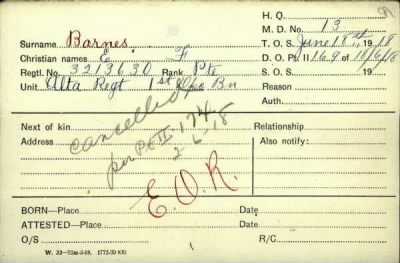 H. Q.
M. D. No. 13
Surname Barnes
T. O. S. June 18th 1918
Christian names E. F
D. O. Pt. II 169 of 18/6/18
Regtl. No. 3213630 Rank Pte
S. O. S. 19
Unit Alta Regt 1st Dpo Bn
Reason
Auth.
cancelled
per Pt II-174
2-6-18
Next of kin
Relationship
Address
Also notify:
E.O.R.
BORN—Place Date
ATTESTED—Place Date
O/S R/C
W. 22—75M-5-18. 1772-39 830